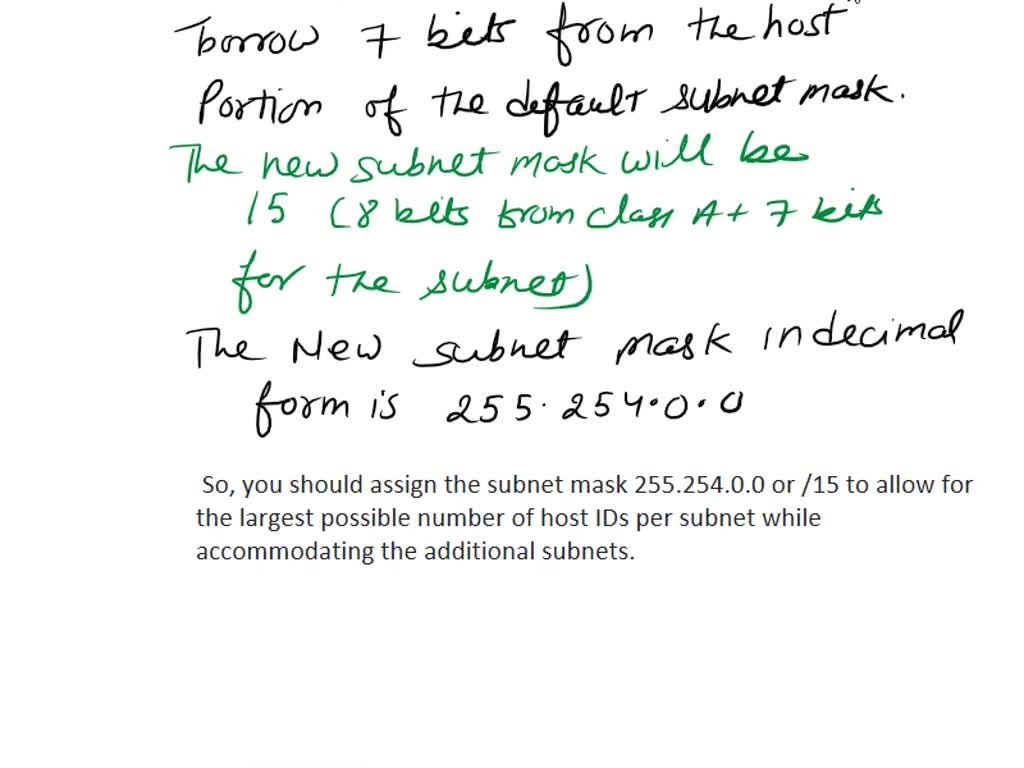 borrow 7 bits from the host
Portion of the default subnet mask.
The new subnet mask will be
15 (8 bits from class A + 7 bits
for the subnet)
The New subnet mask in decimal
form is 255.254.0.0
So, you should assign the subnet mask 255.254.0.0 or /15 to allow for
the largest possible number of host IDs per subnet while
accommodating the additional subnets.